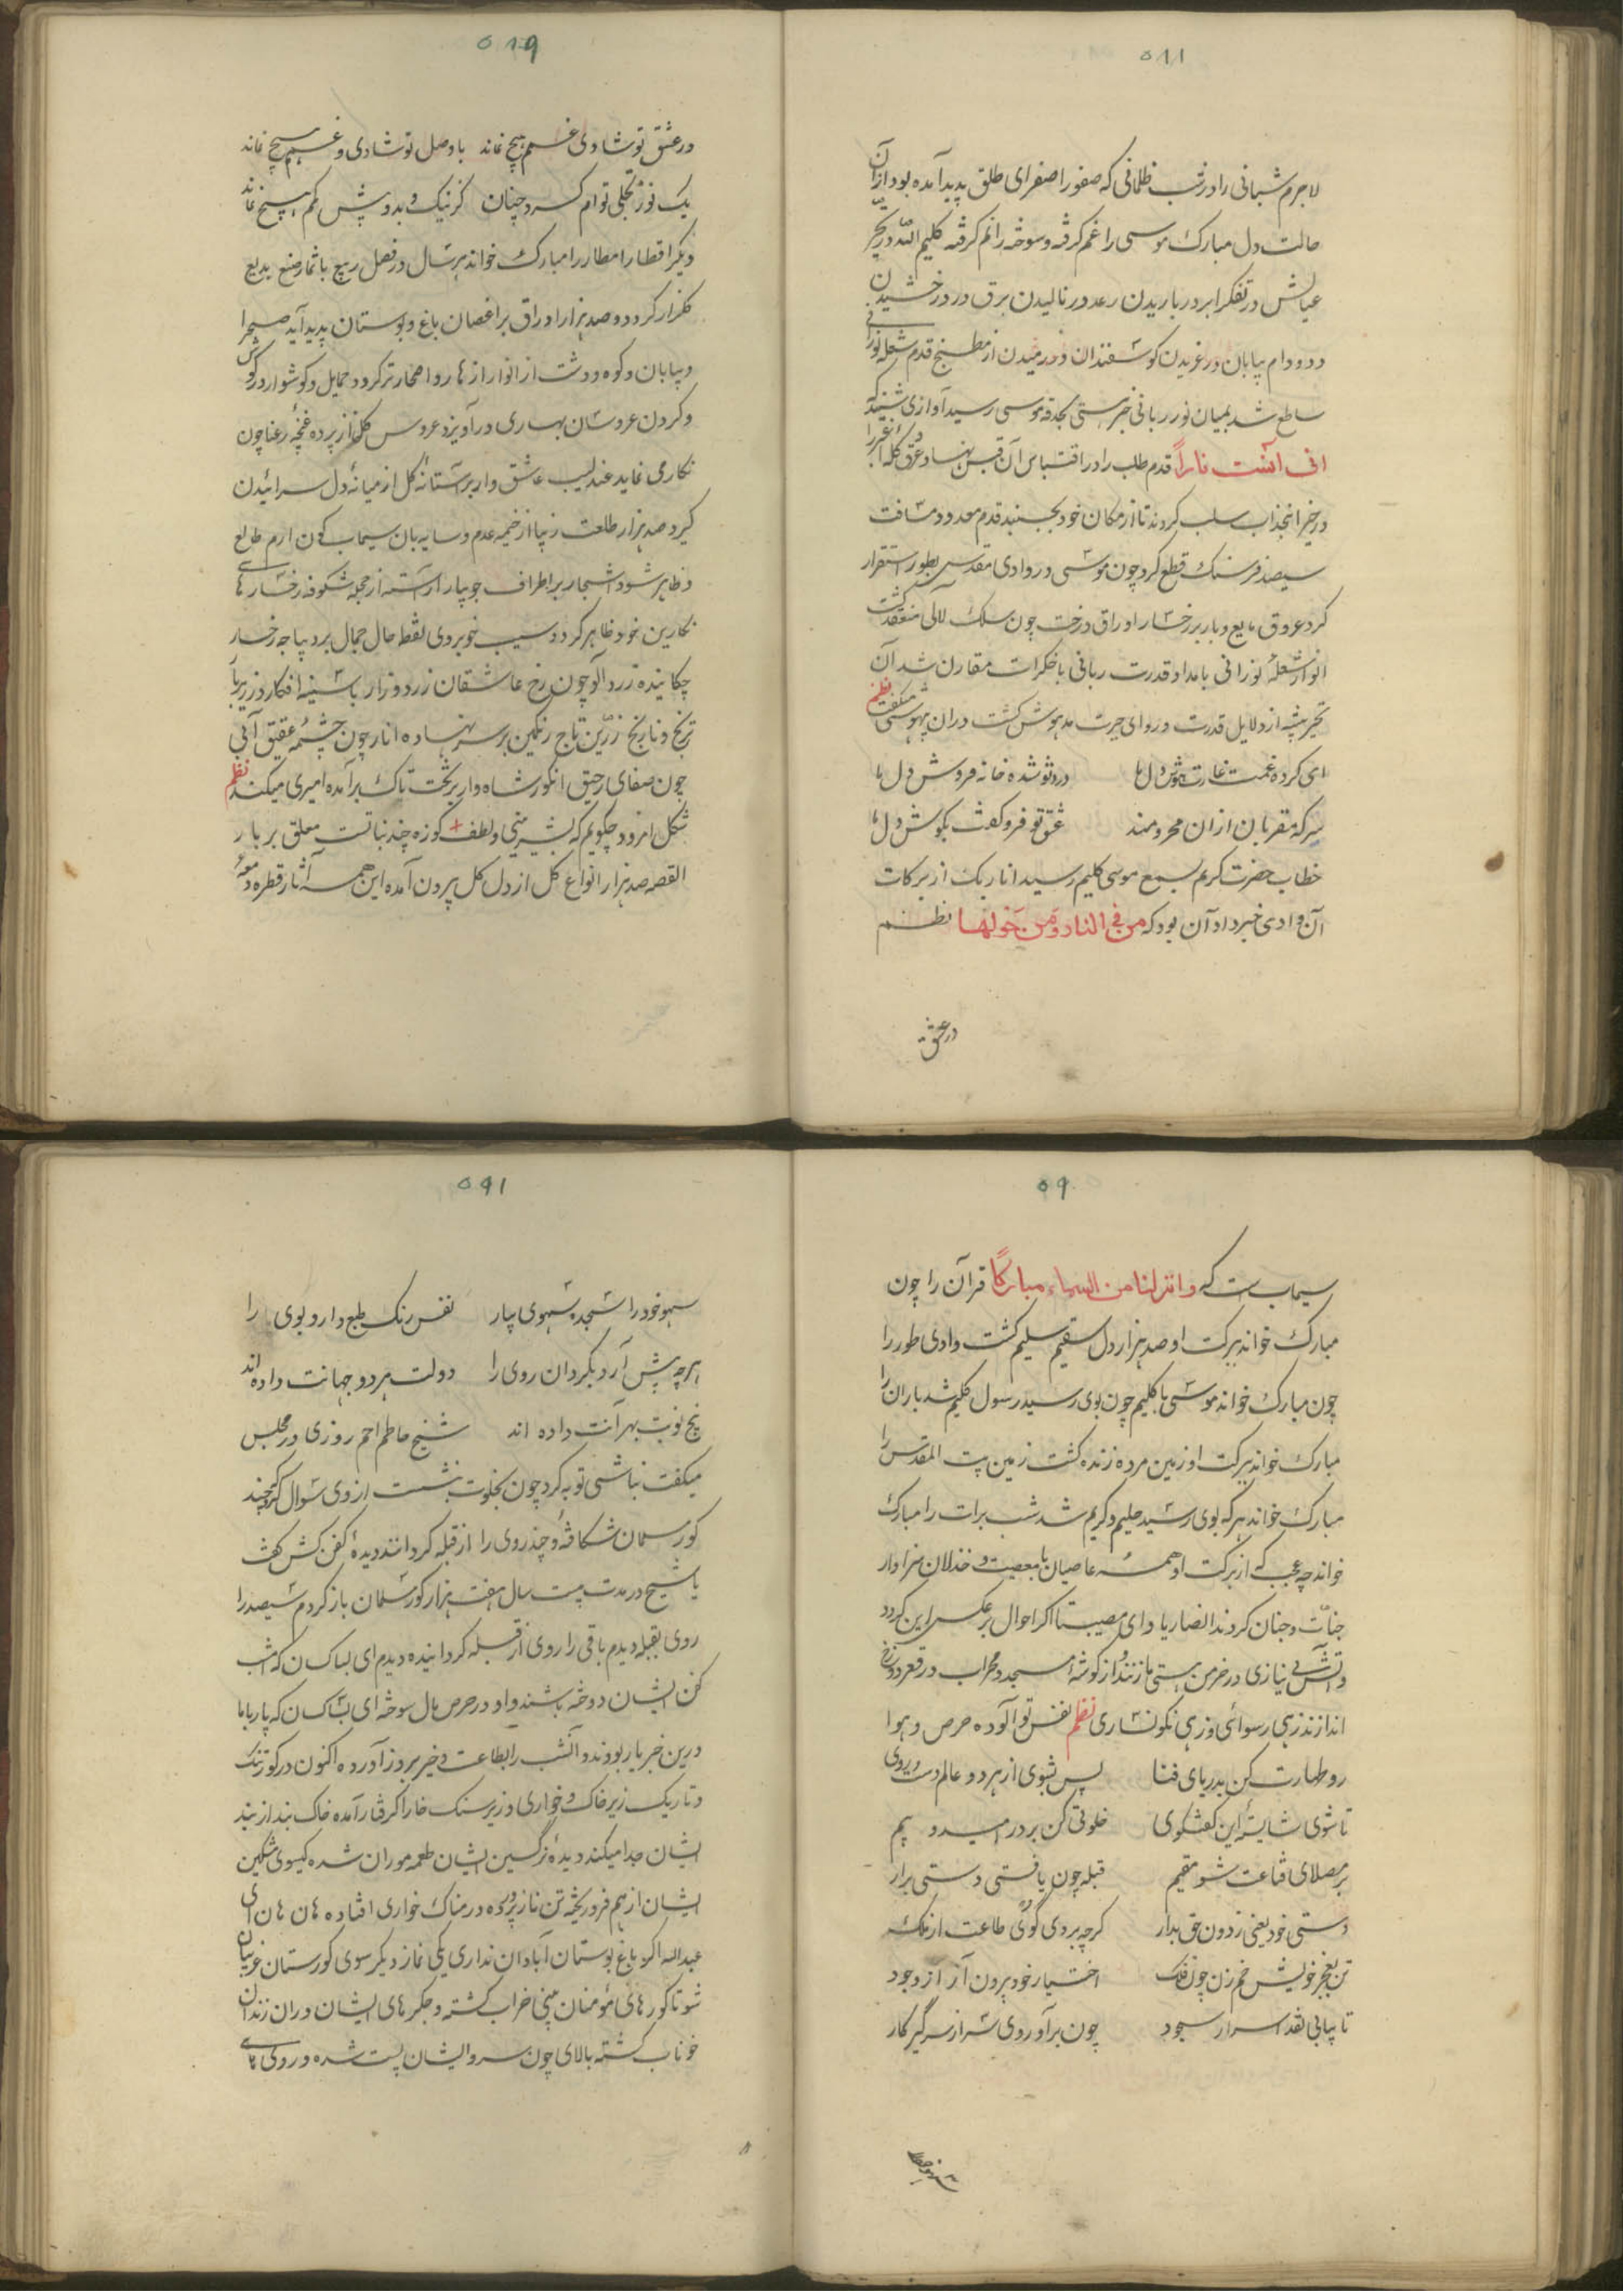 ۵۸۸
لاجرم شبانی را در شب ظلمانی که صفورا صفرای طلق پدید آمده بود از آن
حالت دل مبارک موسی را غم گرفته و سوخته را نم گرفته کلیم الله در تحیر
عیالش در تفکر ابر در باریدن رعد در نالیدن برق در درخشیدن
دد و دام بیابان در غریدن کوسفندان در رمیدن از مطبخ قدم شعله نورانی
ساطع شد بمیان نور ربانی جبرستی بحدقه موسی رسید آوازی شنید که
انی آنست ناراً قدم طلب را در اقتباس آن قبس نهاد و عرق کله اغبر را
در خیر انجذاب سلب کردند تا از مکان خود بجنبد قدم معدود مسافت
سیصد فرسنک قطع کرد چون موسی در وادی مقدس بطور استقرار
کرد عروق مایع و بار بر رخسار اوراق درخت چون سلک لآلی منعقد کشت
انوار شعلهٔ نورانی بامداد قدرت ربانی با خطرات مقارن شد آن
تحیر پیشه از دلایل قدرت در وادی حیرت مدهوش کشت در آن بیهوشی میکفت نظم
ای کرده غمت غارت هوش دل ما درد تو شده خانه فروش دل ما
سرکه مقربان ازان محرومند عشق تو فرو کفت بکوش دل ما
خطاب حضرت کریم بسمع موسی کلیم رسید انا ربک از برکات
آن وادی خبر داد آن بود که من فی النار و من حولها نظم
در عشق
۵۸۹
در عشق تو شادی و غمم هیچ نماند با وصل تو شادی و غمم هیچ نماند
یک نور تجلی توام کرد چنان کز نیک و بد و بیش و کم هیچ نماند
دیکر اقطار امطار را مبارک خواند هر سال در فصل ربیع با ثمار صنع بدیع
کلزار کردد و صد هزار اوراق بر اغصان باغ و بوستان پدید آید صحرا
و بیابان و کوه و دشت از انوار ازهار و اصحار تر کردد حمایل و کوشوار در کوش
و کردن عروسان بهاری در آویزد عروس کل از پرده غنچه رعنا چون
نکار می نماید عندلیب عاشق وار بر آستانهٔ کل از میانهٔ دل سرائیدن
کیرد صد هزار طلعت زیبا از خیمه عدم و سایه بان سیماب کون ارم طالع
و ظاهر شود اشجار بر اطراف جویبار آراسته از حجله شکوفه رخسارها
نکارین خود ظاهر کردد سیب خوبروی نقط خال جمال بر دیباجه رخسار
چکانیده زردآلو چون رخ عاشقان زرد و زار با سینه افکار وزیر با
ترنج و نارنج زرین تاج رنکین بر سر نهاده انار چون چشمه عقیق آبی
چون صفای رحیق انکور شاه وار بر تخت تاک برآمده امیری میکند نظم
شکل امرود چکویم که بشیرینی و لطف کوزه چند نباتست معلق بر بار
القصه صد هزار انواع کل از دل کل بیرون آمده این همه آثار قطره دمعه
۵۹۰
سیماب ست که و انزلنا من السماء مبارکاً قرآن را چون
مبارک خواند ببرکت او صد هزار دل سقیم سلیم کشت وادی طور را
چون مبارک خواند موسی با کلیم چون بوی رسید رسول کلیم شد باران را
مبارک خواند ببرکت او زمین مرده زنده کشت زمین بیت المقدس را
مبارک خواند هر که بوی رسید حلیم و کریم شد شب برات را مبارک
خواند چه عجب که از برکت او همه عاصیان با معصیت و خذلان سزاوار
جنات و جنان کردند انصار یا وای مصیبتا اکر احوال بر عکس این کردد
و آتش بی نیازی در خرمن هستی ما زنند و از کوشهٔ مسجد و محراب در قعر دوزخ
اندازند زهی رسوائی و زهی نکونساری نظم نفس تو آلوده حرص و هوا
رو طهارت کن بدریای فنا پس بشوی از هر دو عالم دست و روی
تا شوی شایستهٔ این کفتکوی خلوتی کن بر در امید و بیم
بر مصلای قناعت شو مقیم قبله چون یافتی دستی برار
دستی خود یعنی ز دون حق بدار کرچه بردی کوی طاعت از ملک
تن بعجز خویش خم زن چون فلک اختیار خود برون آر از وجود
تا بیابی نقد اسرار سجود چون برآوردی سر از سر گیر کار
سهو خود را
۵۹۱
سهو خود را سجده سهوی بیار نفس رنک طبع دارد بوی را
هرچه پیش آرد بکردان روی را دولت هر دو جهانت داده اند
پنج نوبت بهر آنت داده اند شیخ حاطم اصم روزی در مجلس
میکفت نباشی توبه کرد چون بخلوت بنشست از وی سوال کرد که چند
کور مسلمان شکافتهٔ و چند روی را از قبله کردانند دیدهٔ کفن کش کفت
یا شیخ در مدت بیست سال هفت هزار کور مسلمان باز کردم سیصد را
روی بقبله دیدم باقی را روی از قبله کردانیده دیدم ای بساکسان که امشب
کفن ایشان دوخته باشند و او در حرص مال سوخته ای بساکسان که پار با ما
درین خبر یار بودند و آنشب را بطاعت و خیر بروز آورده اکنون در کور تنک
و تاریک زیر خاک و خواری و زیر سنک خارا کرفتار آمده خاک بند از بند
ایشان جدا میکند دیدهٔ نرکسین ایشان طعمه موران شده کیسوی مشکین
ایشان از هم فرو ریخته تن ناز پرورده در مغاک خواری افتاده هان هان ای
عبدالله اکر باغ بوستان آبادان نداری یکی نماز دیکر سوی کورستان غریبان
شو تا کورهای مؤمنان بینی خراب کشته و جکرهای ایشان در آن زندان
خوناب کشته بالای چون سرو ایشان پست شده و روی